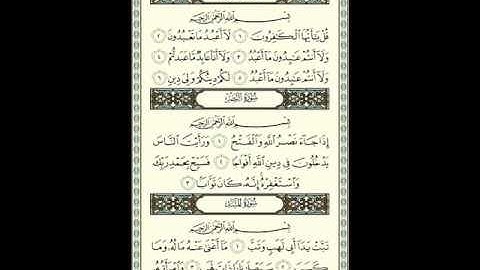 بِسْمِ ٱللَّهِ ٱلرَّحْمَٰنِ ٱلرَّحِيمِ
قُلْ يَٰٓأَيُّهَا ٱلْكَٰفِرُونَ ١ لَآ أَعْبُدُ مَا تَعْبُدُونَ ٢
وَلَآ أَنتُمْ عَٰبِدُونَ مَآ أَعْبُدُ ٣ وَلَآ أَنَا۠ عَابِدٌ مَّا عَبَدتُّمْ ٤
وَلَآ أَنتُمْ عَٰبِدُونَ مَآ أَعْبُدُ ٥ لَكُمْ دِينُكُمْ وَلِىَ دِينِ ٦
سُورَةُ النَّصْرِ
بِسْمِ ٱللَّهِ ٱلرَّحْمَٰنِ ٱلرَّحِيمِ
إِذَا جَآءَ نَصْرُ ٱللَّهِ وَٱلْفَتْحُ ١ وَرَأَيْتَ ٱلنَّاسَ
يَدْخُلُونَ فِى دِينِ ٱللَّهِ أَفْوَاجًا ٢ فَسَبِّحْ بِحَمْدِ رَبِّكَ
وَٱسْتَغْفِرْهُ إِنَّهُۥ كَانَ تَوَّابًۢا ٣
سُورَةُ المَسَدِ
بِسْمِ ٱللَّهِ ٱلرَّحْمَٰنِ ٱلرَّحِيمِ
تَبَّتْ يَدَآ أَبِى لَهَبٍ وَتَبَّ ١ مَآ أَغْنَىٰ عَنْهُ مَالُهُۥ وَمَا